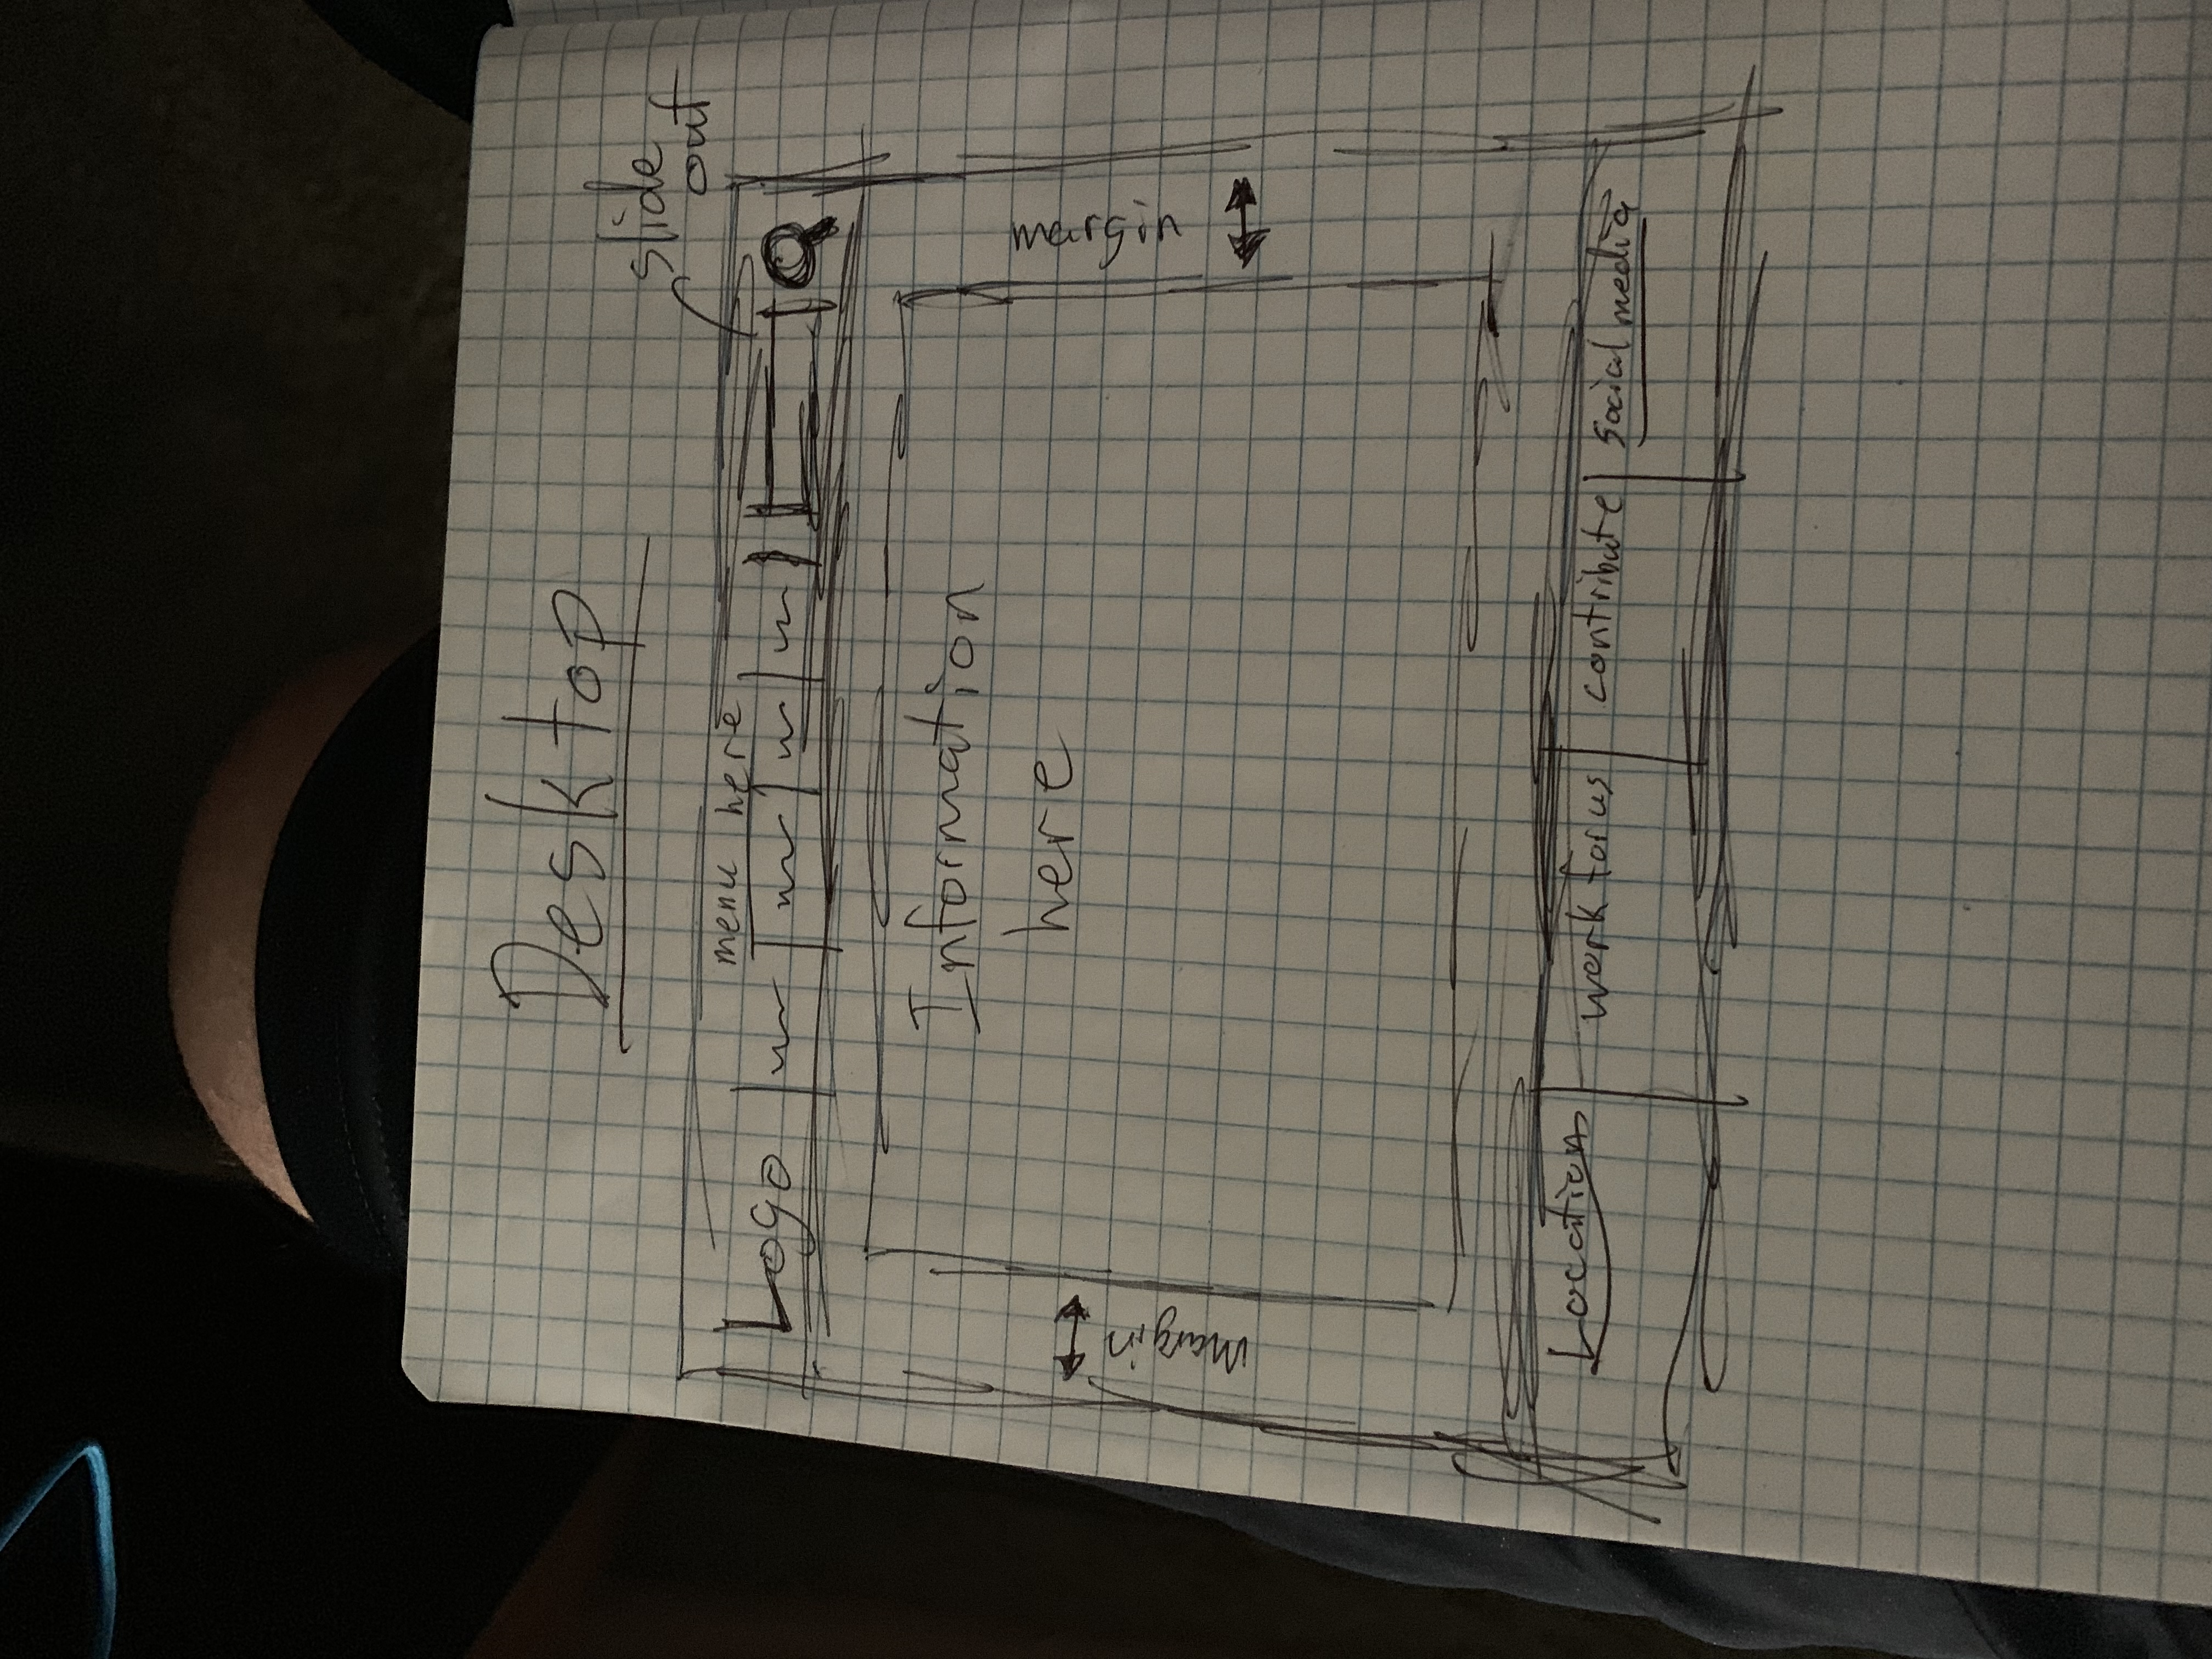 Desktop
slide
out
menu here
Logo
Information
here
margin
margin
Location
work for us
contribute
social media